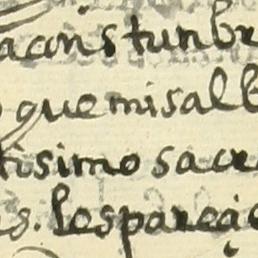 aconstunbr
que mis alb
tisimo sacra
s. les pareçe